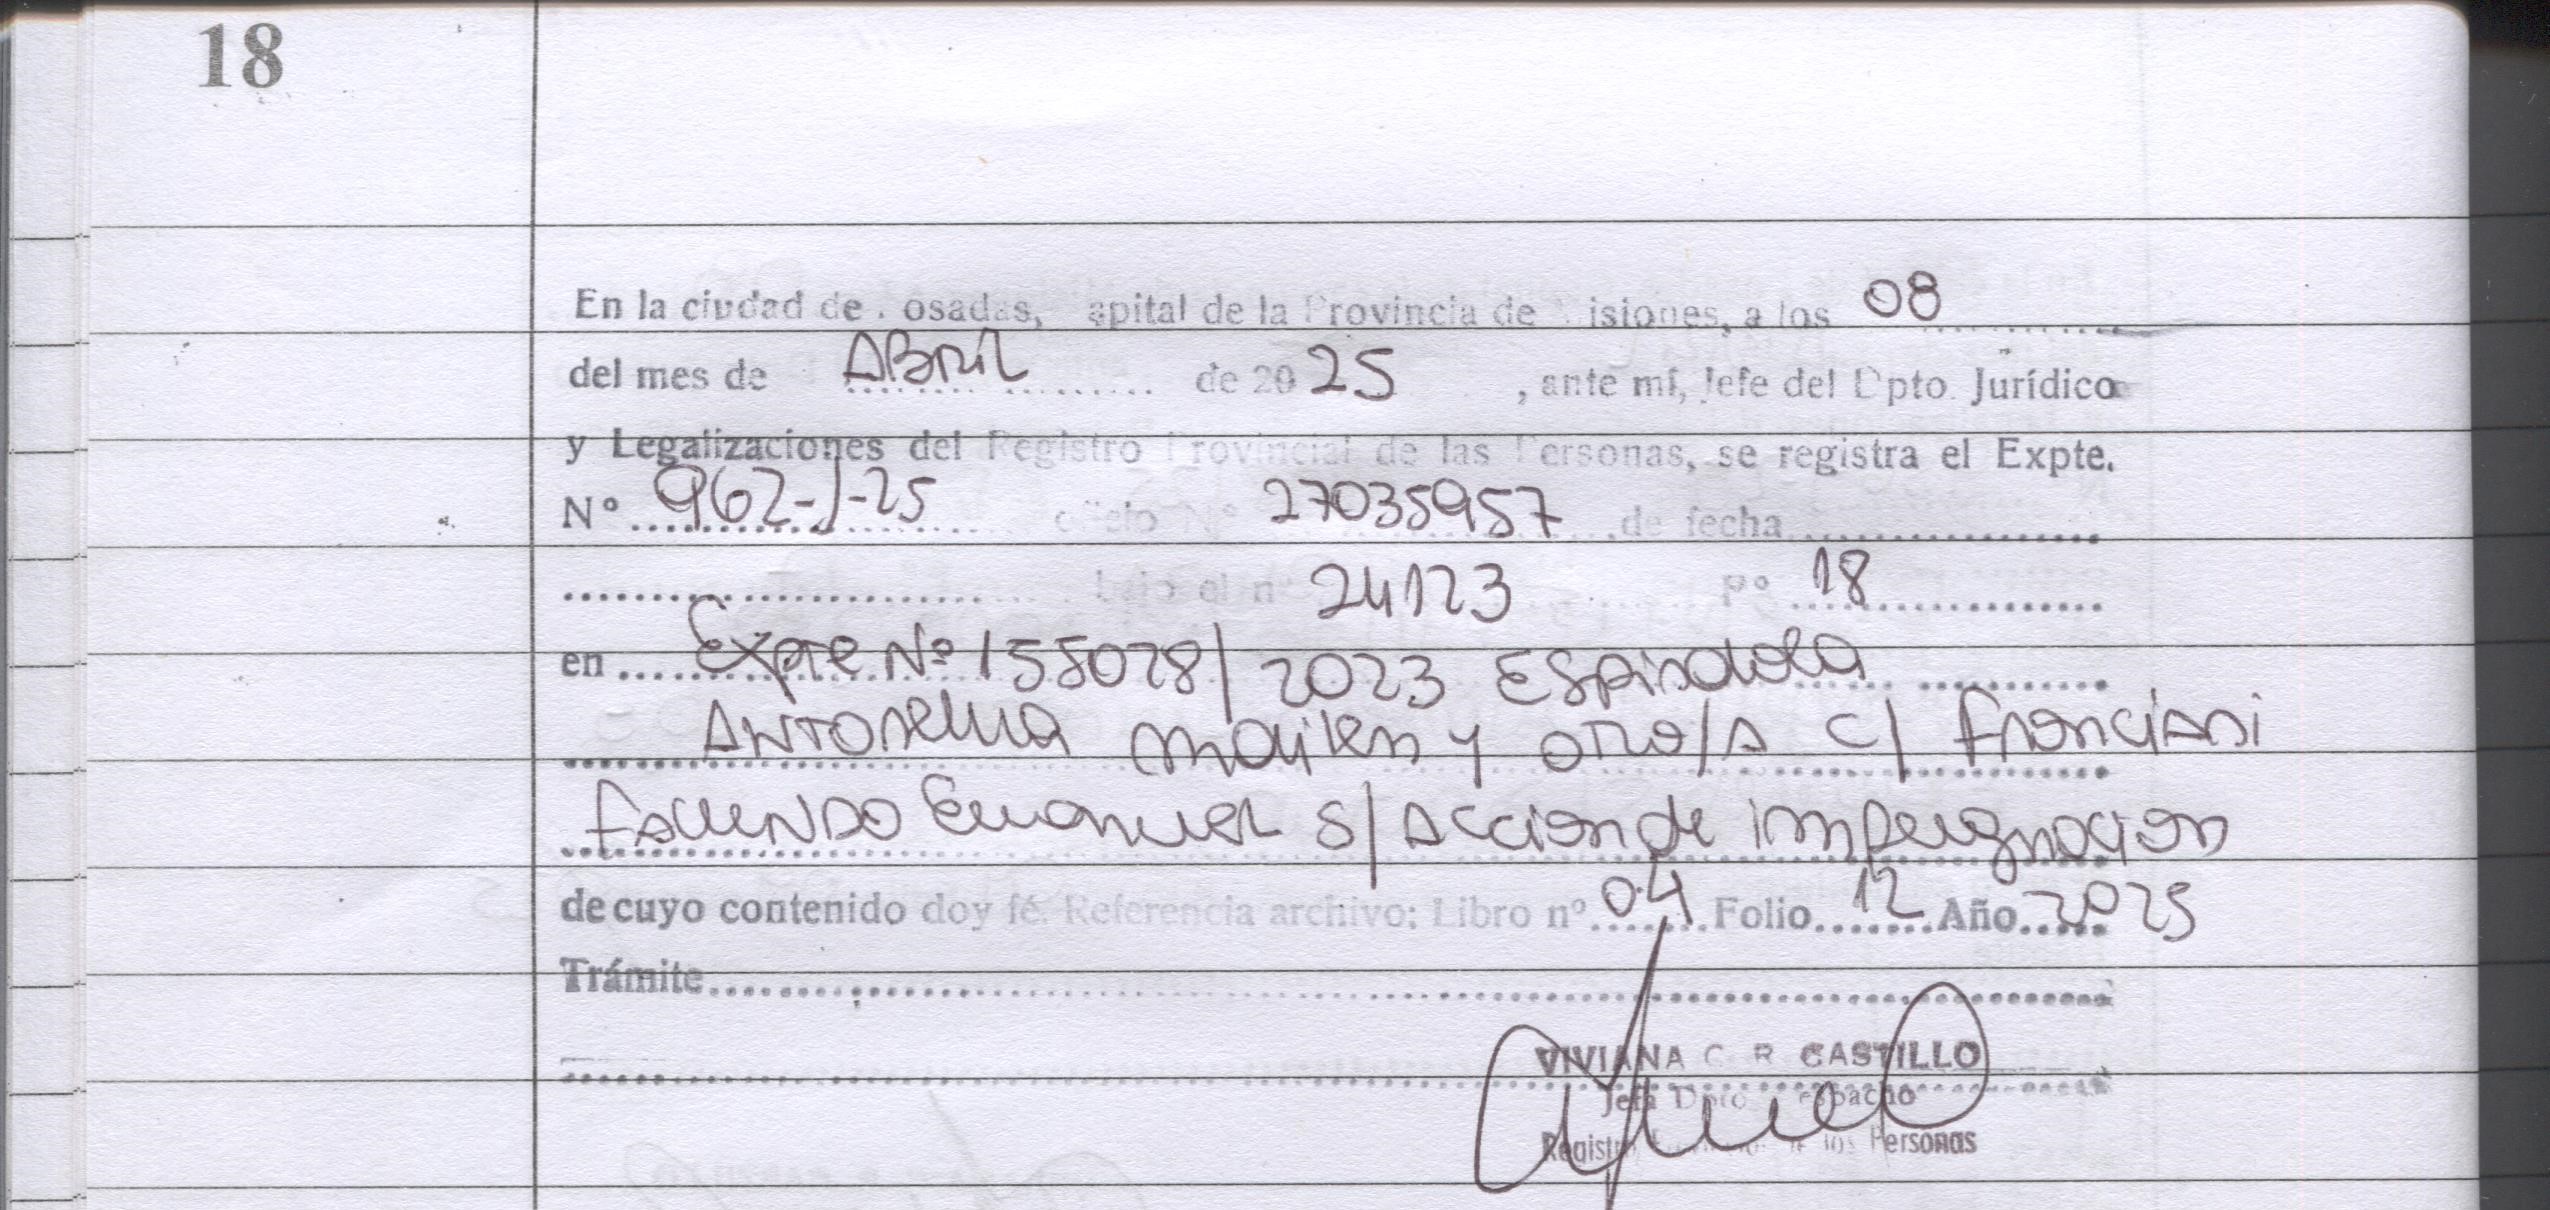 18
En la ciudad de Posadas, Capital de la Provincia de Misiones, a los 08
del mes de ABril de 2025, ante mí, Jefe del Dpto. Jurídico
y Legalizaciones del Registro Provincial de las Personas, se registra el Expte.
Nº 962-J-25 oficio Nº 27035957 de fecha
bajo el nº 24123 Fº 18
en Expte Nº 155028/2023 Espindola
Antonella Mailen y otro/a c/ Franciani
Facundo Emanuel s/ accion de impugnacion
de cuyo contenido doy fé. Referencia archivo: Libro nº 04 Folio 12 Año 2025
Trámite
VIVIANA C. R. CASTILLO
Jefa Dpto. Despacho
Registro Provincial de las Personas